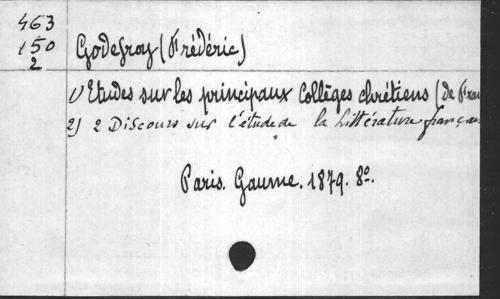 463
150
2
Godefroy (Frédéric)
1) Etudes sur les principaux Collèges chrétiens (de Fran
2) 2 Discours sur l'étude de la littérature françai
Paris. Gaume. 1879. 8º.